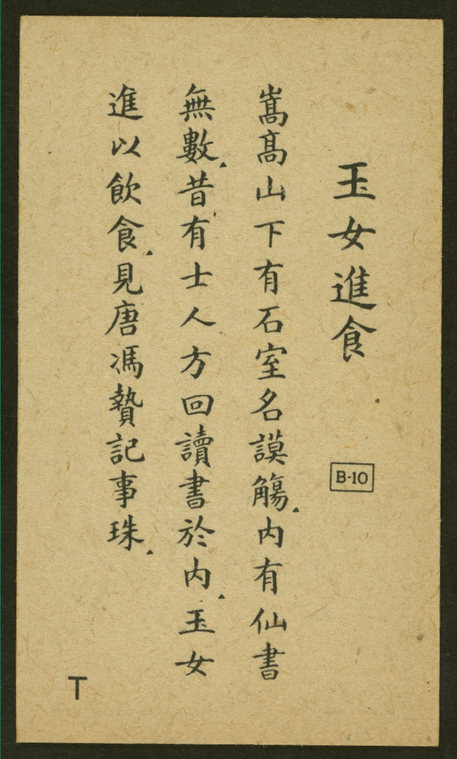 玉女進食
B-10
嵩高山下有石室名謨觴.内有仙書
無數.昔有士人方回讀書於内.玉女
進以飲食.見唐馮贄記事珠.
T